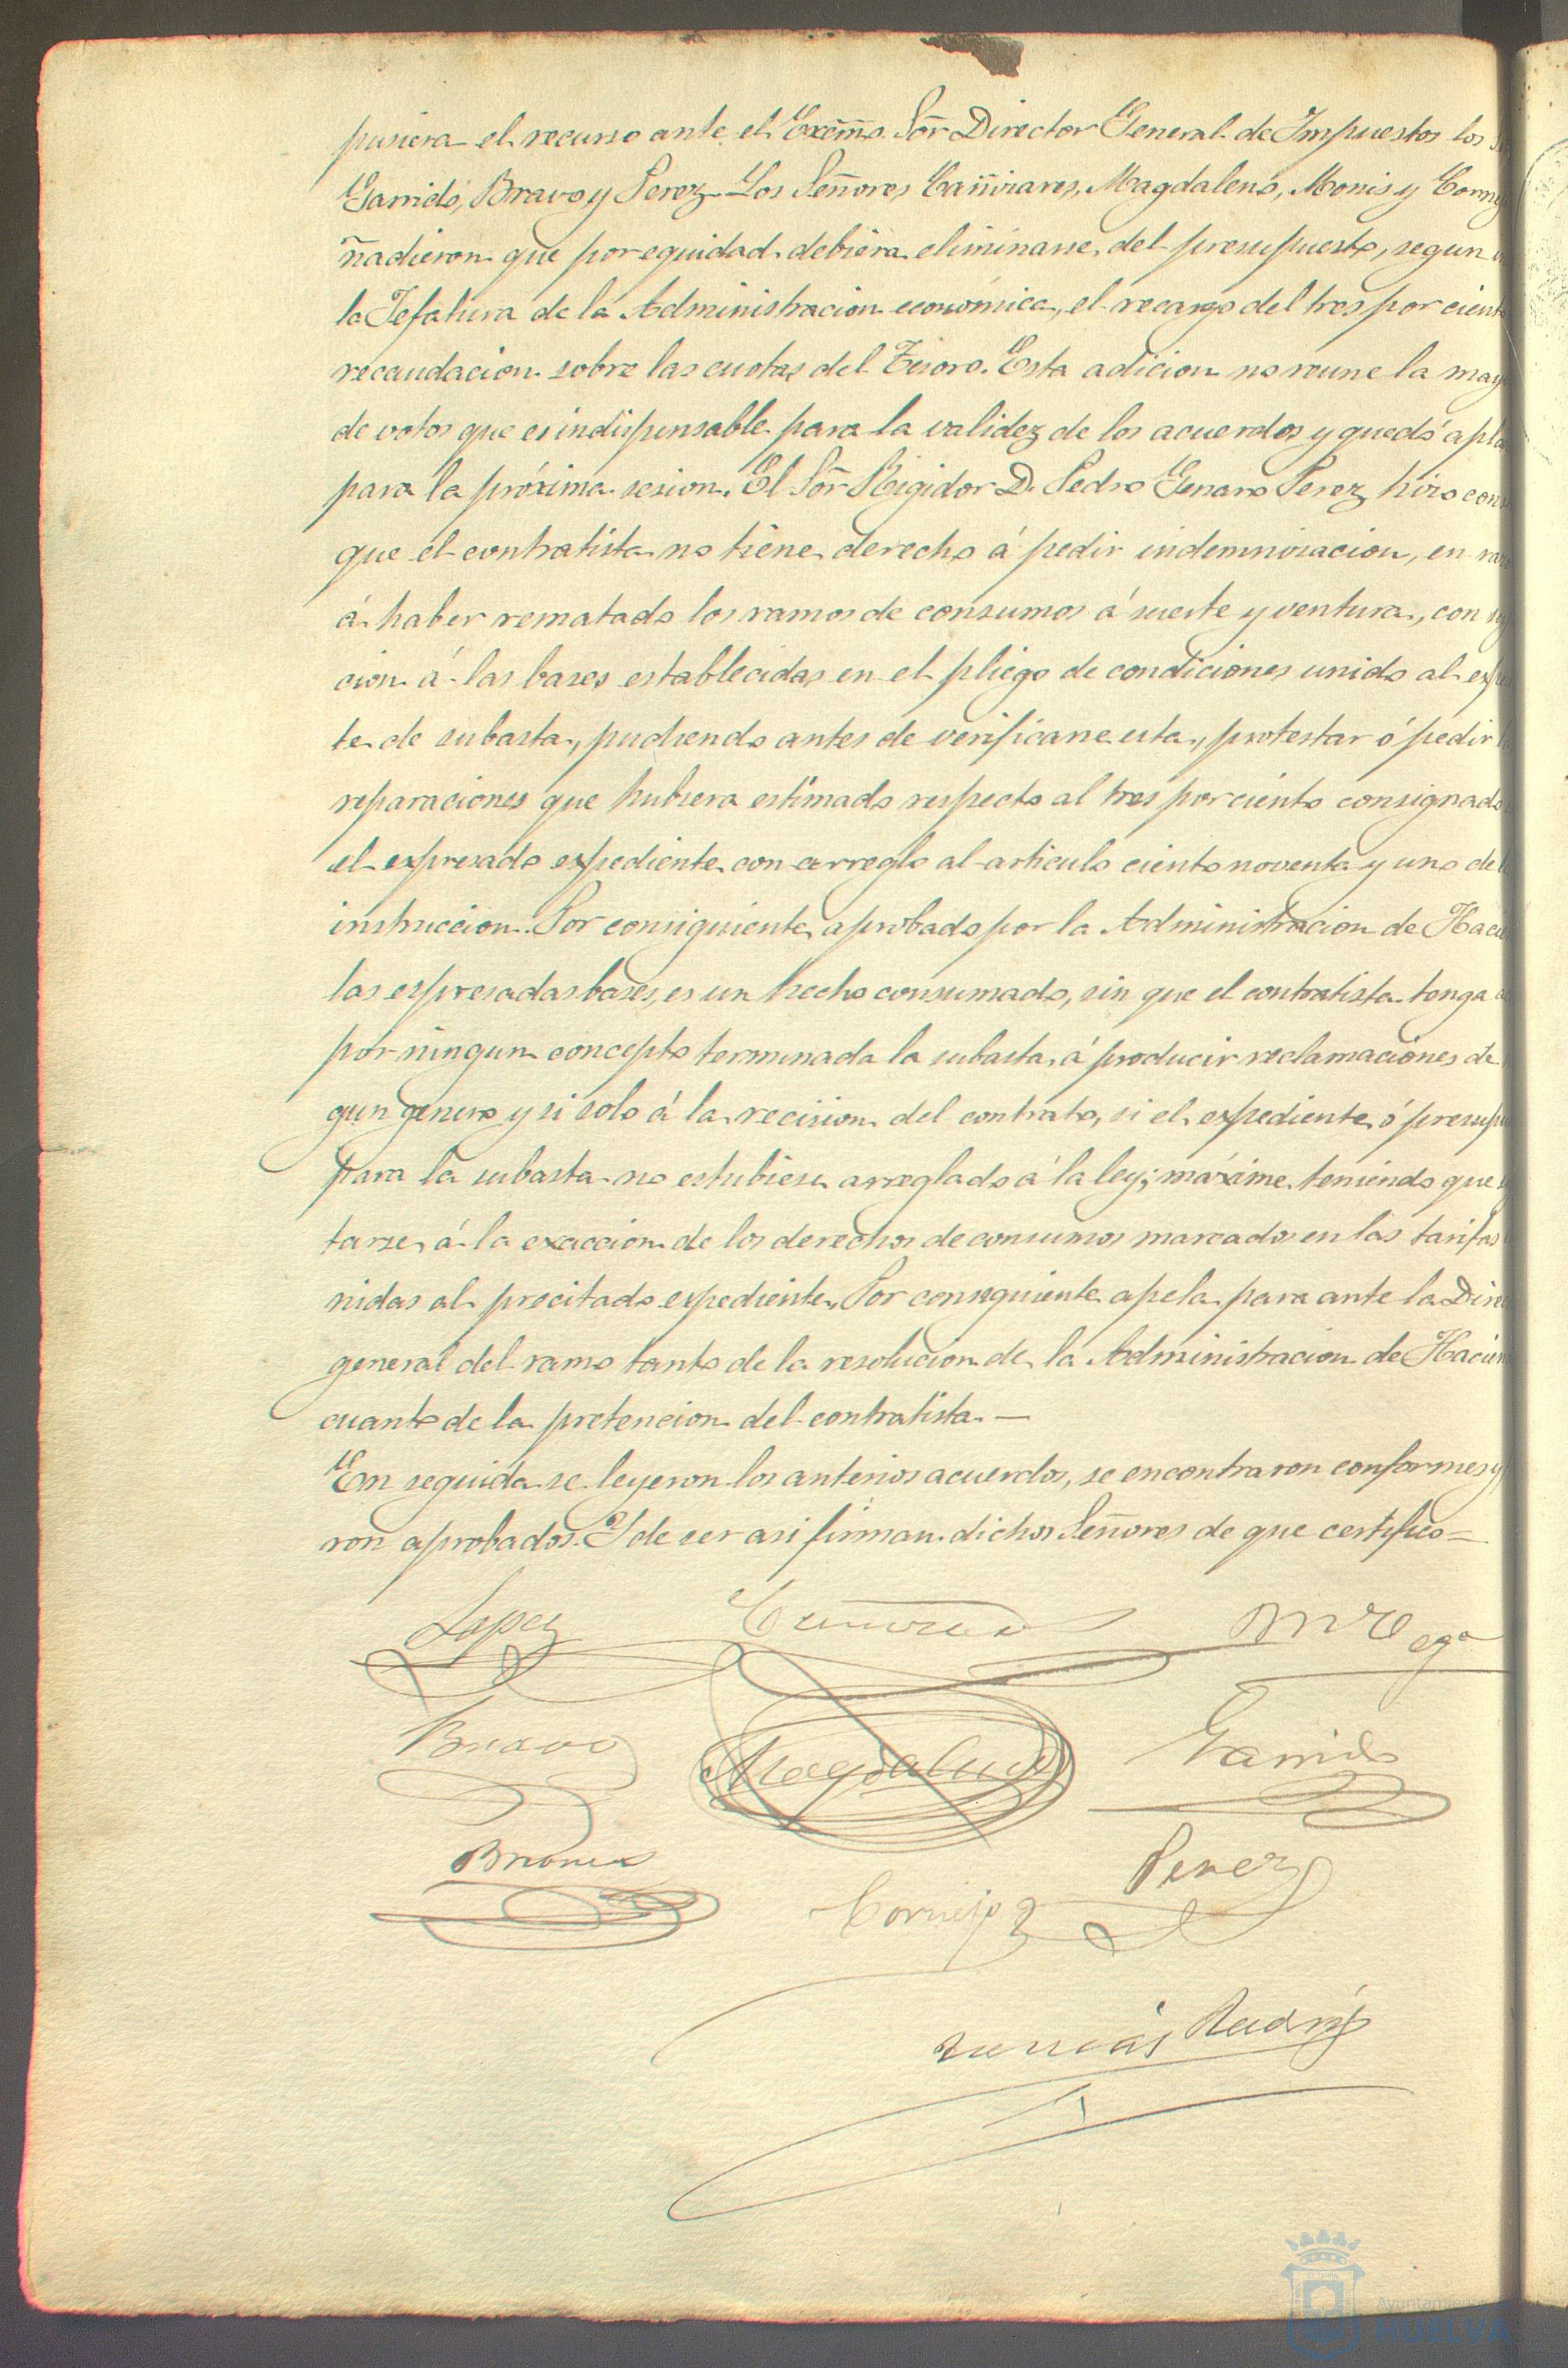 pusiera el recurso ante el Excmo. Sõr Director General de Impuestos los
Garrido, Bravo y Perez. Los Señores Cañizares, Magdaleno, Monis y Corne
ñadieron que por equidad debiera eliminarse del presupuesto, segun
la Jefatura de la Administracion económica, el recargo del tres por ciento
recaudacion sobre las cuotas del Tesoro. Esta adicion no reune la may
de votos que es indispensable para la validez de los acuerdos y quedó apla
para la próxima sesion. El Sõr Rigidor D. Pedro Genaro Perez, hizo cons
que el contratista no tiene derecho á pedir indemnizacion, en raz
á haber rematado los ramos de consumos á suerte y ventura, con suj
cion á las bases establecidas en el pliego de condiciones unido al expe
te de subasta, pudiendo antes de verificarse esta, protestar ó pedir
reparaciones que hubiera estimado respecto al tres por ciento consignado
el expresado expediente con arreglo al articulo ciento noventa y uno de
instruccion. Por consiguiente, aprobado por la Administracion de Hacie
las expresadas bases, es un hecho consumado, sin que el contratista tenga
por ningun concepto terminada la subasta, á producir reclamaciones de
gun genero y si solo á la recision del contrato, si el expediente ó presup
para la subasta no estubiese arreglado á la ley; máxime teniendo que
tarse á la exaccion de los derechos de consumos marcados en las tarifas
nidas al precitado expediente. Por consiguiente apela para ante la Dire
general del ramo tanto de la resolucion de la Administracion de Hacien
cuanto de la pretencion del contratista.—
En seguida se leyeron los anterios acuerdos, se encontraron conformes y
ron aprobados. Y de ser asi firman dichos Señores de que certifico=
Lopez Cañizares
Bravo Magdaleno Garrido
Briones Cornejo Perez
Ayuntamiento
HUELVA